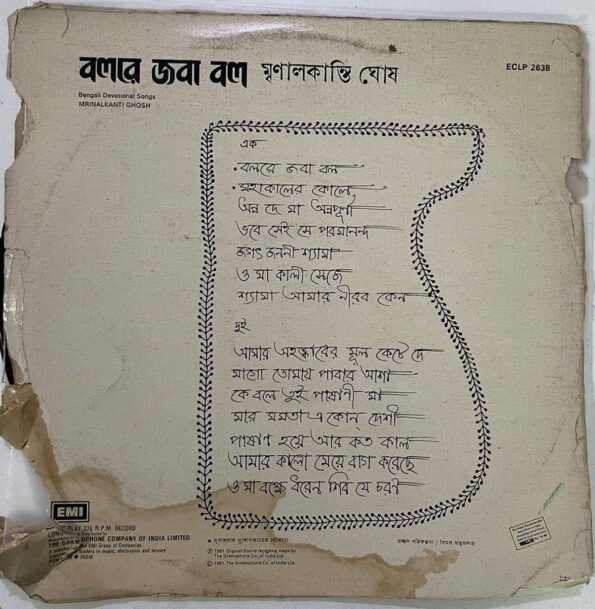 বলরে জবা বল মৃণালকান্তি ঘোষ
ECLP 2638
Bengali Devotional Songs
MRINALKANTI GHOSH
এক
• বলরে জবা বল
• মহাকালের কোলে
অন্ন দে মা অন্নপূর্ণা
ভবে সেই সে পরমানন্দ
জগৎ জননী শ্যামা
ও মা কালী সেজে
শ্যামা আমার নীরব কেন
দুই
আমার অহঙ্কারের মূল কেটে দে
মাগো তোমায় পাবার আশা
কে বলে তুই পাষাণী মা
মার মমতা এ কোন্ দেশী
পাষাণ হয়ে আর কত কাল
আমার কালো মেয়ে রাগ করেছে
ও মা বক্ষে ধরেন শিব যে চরণ
EMI
PLAY 33⅓ R.P.M. RECORD
THE GRAMOPHONE COMPANY OF INDIA LIMITED
the EMI Group of Companies
leaders in music, electronics and leisure
• INDIA
প্রচ্ছদ পরিকল্পনা / বিমল মজুমদার
Ⓟ 1981 Original Sound recording made by
The Gramophone Co. of India Ltd.
© 1981 The Gramophone Co. of India Ltd.